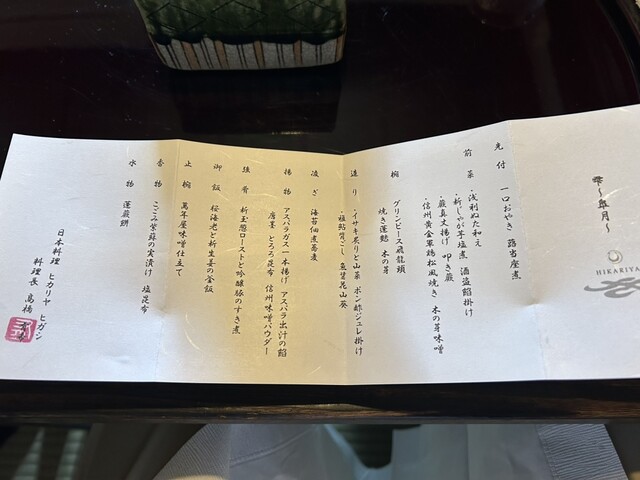 雫〜皐月〜
HIKARIYA
先付 一口おやき 蕗当座煮
前菜 ・浅利ぬた和え
・新じゃが芋塩煮 酒盗餡掛け
・蕨真丈揚げ 叩き蕨
・信州黄金軍鶏松風焼き 木の芽味噌
椀 グリンピース飛龍頭
焼き蓮麩 木の芽
造り ・イサキ炙りと山菜 ポン酢ジュレ掛け
凌ぎ 海苔佃煮蕎麦
揚物 アスパラガス一本揚げ アスパラ出汁の餡
唐墨 とろろ昆布 信州味噌パウダー
強肴 新玉葱ローストと吟醸豚のすき煮
御飯 桜海老と新生姜の釜飯
止椀 萬年屋味噌仕立て
香物 こごみ紫蘇の実漬け 塩昆布
水物 蓬蕨餅
日本料理 ヒカリヤ ヒガシ
料理長 髙橋